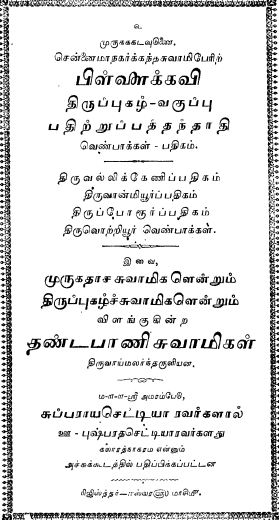 உ
முருகக்கடவுடுணை.
சென்னைமாநகர்க்கந்தசுவாமிபேரிற்
பிள்ளைக்கவி
திருப்புகழ்-வகுப்பு
பதிற்றுப்பத்தந்தாதி
வெண்பாக்கள் - பதிகம்.
திருவல்லிக்கேணிப்பதிகம்
திருவான்மியூர்ப்பதிகம்
திருப்போரூர்ப்பதிகம்
திருவொற்றியூர் வெண்பாக்கள்.
இவை,
முருகதாசசுவாமிகளென்றும்
திருப்புகழ்ச்சுவாமிகளென்றும்
விளங்குகின்ற
தண்டபாணிசுவாமிகள்
திருவாய்மலர்ந்தருளியன.
ம-ள-ள-ஸ்ரீ அமரம்பேடு,
சுப்பராயசெட்டியாரவர்களால்
ஊ - புஷ்பரதசெட்டியாரவர்களது
கலாரத்நாகரம் என்னும்
அச்சுக்கூடத்தில் பதிப்பிக்கப்பட்டன